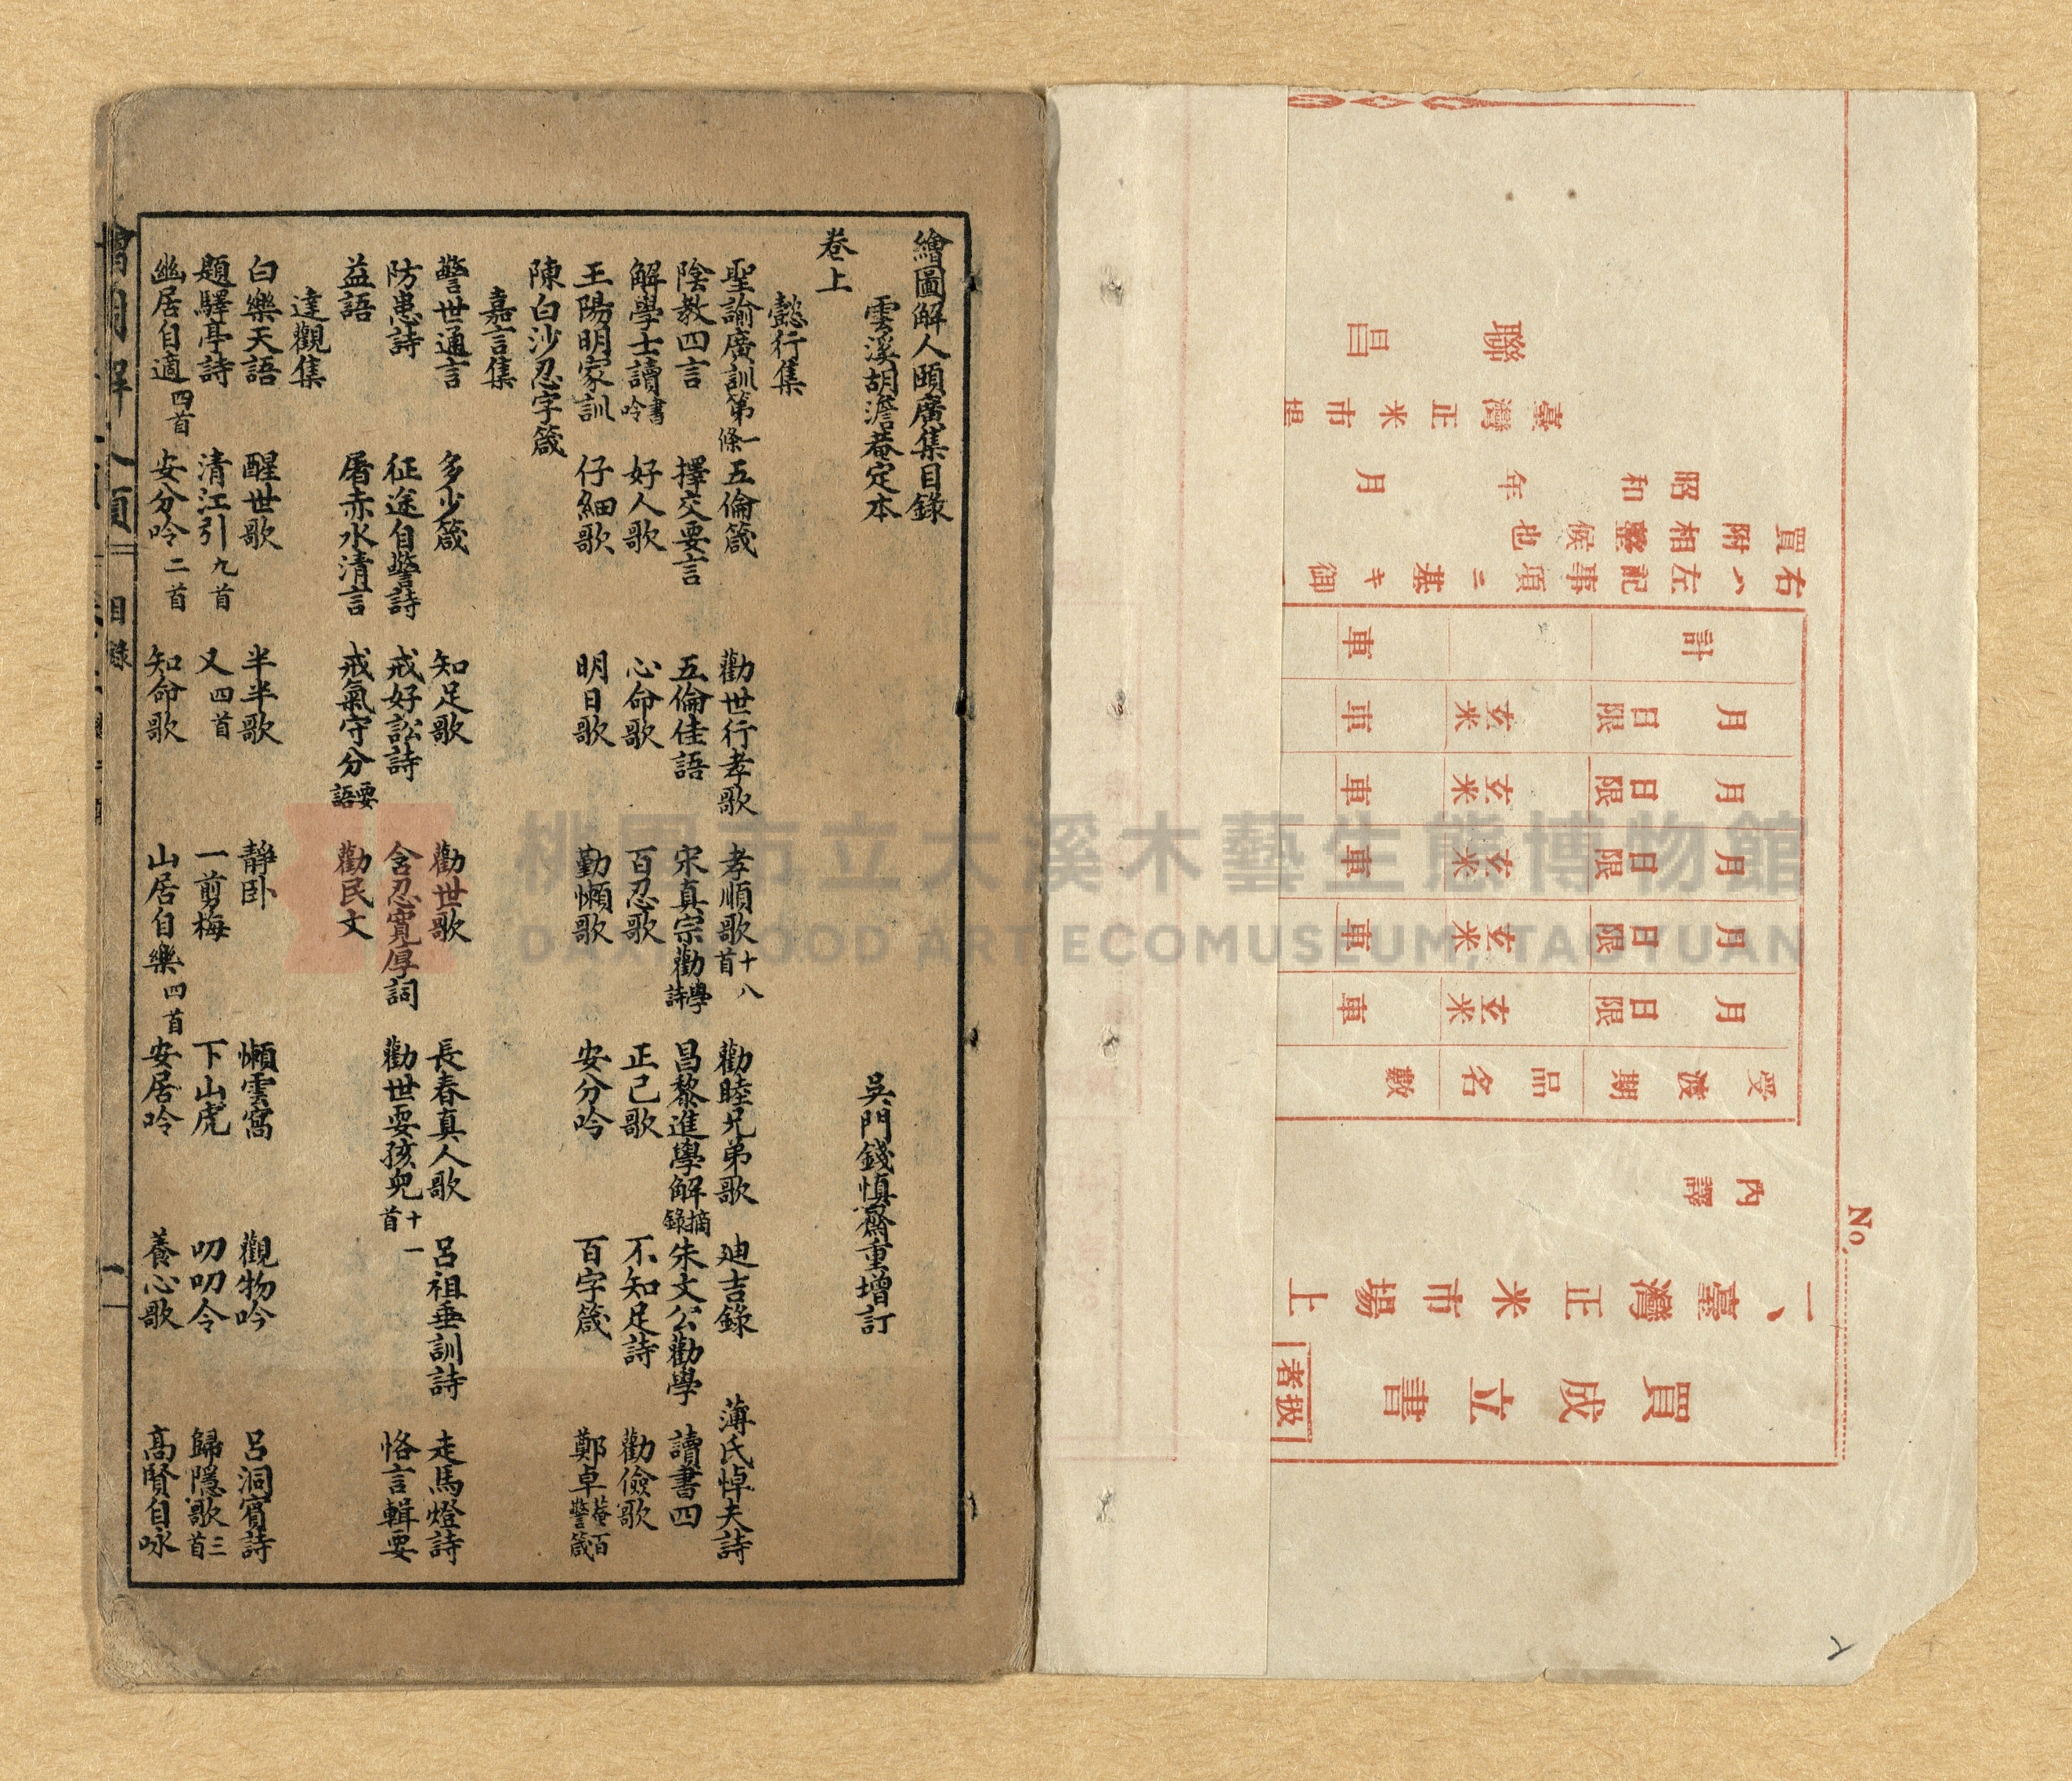 繪圖解人頤廣集目錄
雲溪胡澹菴定本 吳門錢慎齋重增訂
卷上
懿行集
聖諭廣訓第一條 五倫箴 勸世行孝歌 孝順歌十八首 勸睦兄弟歌 迪吉錄 薄氏悼夫詩
陰教四言 擇交要言 五倫佳語 宋真宗勸學詩 昌黎進學解摘錄 朱文公勸學 讀書四
解學士讀書吟 好人歌 心命歌 百忍歌 正己歌 不知足詩 勸儉歌
王陽明家訓 仔細歌 明日歌 勤懶歌 安分吟 百字箴 鄭卓菴百警箴
陳白沙忍字箴
嘉言集
警世通言 多少箴 知足歌 勸世歌 長春真人歌 呂祖垂訓詩 走馬燈詩
防患詩 征途自警詩 戒好訟詩 含忍寬厚詞 勸世耍孩兒十一首 恪言輯要
益語 屠赤水清言 戒氣守分要語 勸民文
達觀集
白樂天語 醒世歌 半半歌 靜臥 懶雲窩 觀物吟 呂洞賓詩
題驛亭詩 清江引九首 又四首 一剪梅 下山虎 叨叨令 歸隱歌三首
幽居自適四首 安分吟二首 知命歌 山居自樂四首 安居吟 養心歌 高賢自咏
目錄
一
No.
買成立書
扱者
一、臺灣正米市場上
內譯
受渡期 品名 數
月 日限 玄米 車
月 日限 玄米 車
月 日限 玄米 車
月 日限 玄米 車
月 日限 玄米 車
計 車
右ハ左記事項ニ基キ御
買附相整候也
昭和 年 月
臺灣正米市場
聯昌
桃園市立大溪木藝生態博物館
DAXI WOOD ART ECOMUSEUM, TAOYUAN